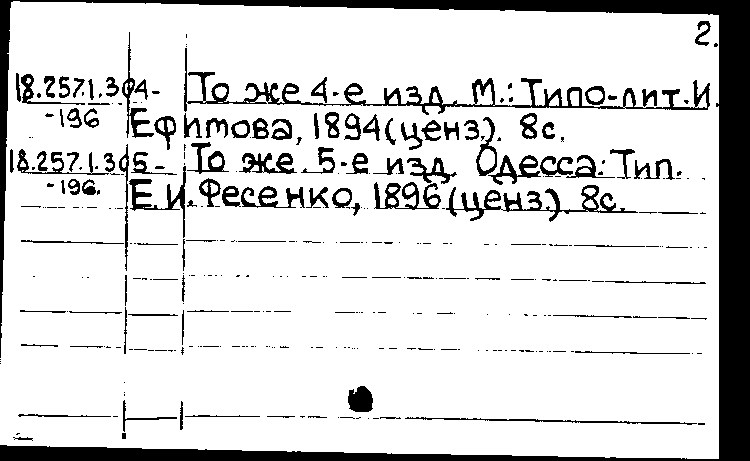 2.
18.257.1.304- То же 4-е изд. М.: Типо-лит. И.
-196 Ефимова, 1894 (ценз.). 8с.
18.257.1.305- То же. 5-е изд. Одесса: Тип.
-196. Е.И. Фесенко, 1896 (ценз.). 8с.